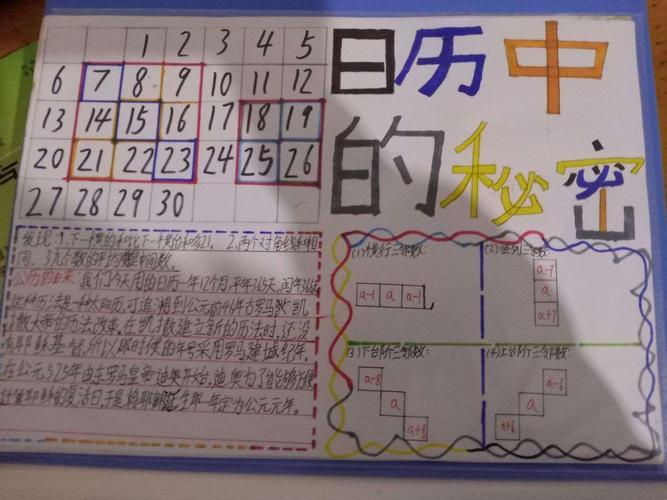 1 2 3 4 5
6 7 8 9 10 11 12
13 14 15 16 17 18 19
20 21 22 23 24 25 26
27 28 29 30
日历中
的秘密
发现:1.下一横的和比下一横的和多21。 2.两个对角线和相
同。3.九个数的平均数是中间数。
公历的由来 我们今天用的日历一年12个月,平年365天,闰年366天
这种历法是一种太阳历,可追溯到公元前46年古罗马
撒大帝的历法改革。在凯撒建立新的历法时,还没
有耶稣基督,所以那时候的年号采用罗马建城纪年。
在公元525年由东罗马皇帝迪奥开始,迪奥为了能够方便
计算耶稣的复活日,于是将耶稣诞生那一年定为公元元年。
(1)横行三邻数:
a-1 a a-1
(2)竖列三邻数:
a-7
a
a+7
(3)下台阶三邻数:
a-8
a
a+8
(4)上台阶三邻数:
a-6
a
a+6